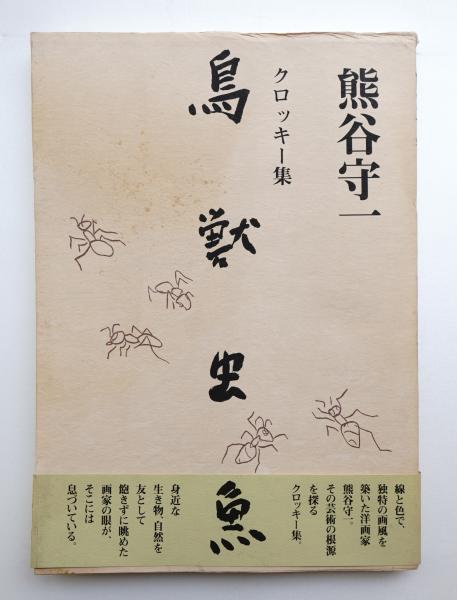 熊谷守一
クロッキー集
鳥獣虫魚
線と色で、
独特の画風を
築いた洋画家
熊谷守一。
その芸術の根源
を探る
クロッキー集。
身近な
生き物、自然を
友として
飽きずに眺めた
画家の眼が、
そこには
息づいている。